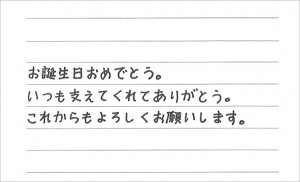 お誕生日おめでとう。
いつも支えてくれてありがとう。
これからもよろしくお願いします。